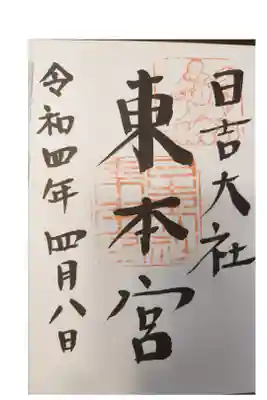 日吉大社
東本宮
令和四年 四月八日